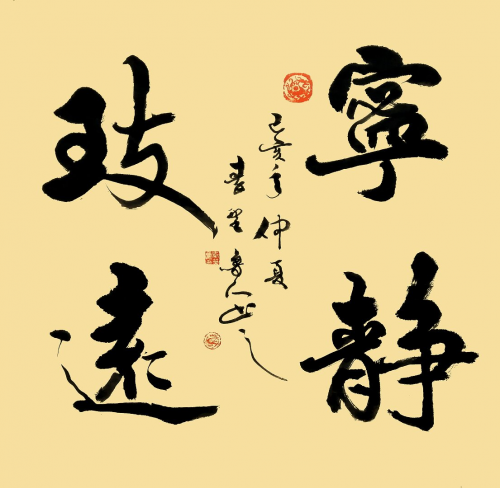 寧靜
致遠
己亥年仲夏